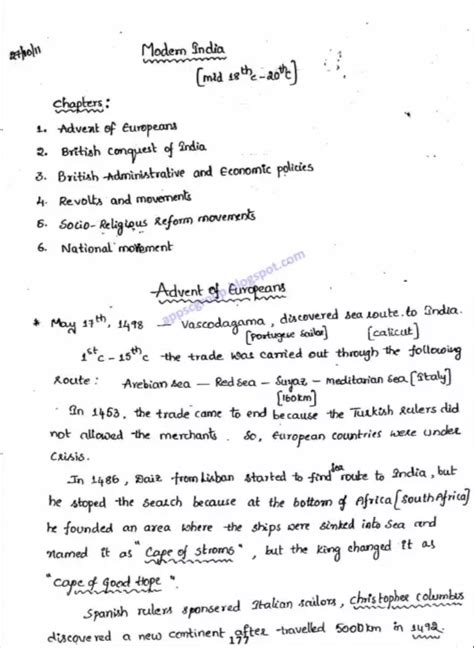 27/10/11
Modern India
[mid 18th c - 20th c]
Chapters:
1. Advent of Europeans
2. British conquest of India
3. British-Administrative and Economic policies
4. Revolts and movements
5. Socio-Religious Reform movements
6. National movement
appscgroup.blogspot.com
Advent of Europeans
* May 17th, 1498 — Vascodagama, discovered sea route to India.
[Portugese Sailor] [calicut]
1st c - 15th c the trade was carried out through the following
route: Arebian sea — Red sea — Suyaz — meditarian sea [Italy]
[160km]
In 1453, the trade came to end because the Turkish rulers did
not allowed the merchants. So, European countries were under
crisis.
In 1486, Daiz from Lisban started to find sea route to India, but
he stoped the search because at the bottom of Africa [South Africa]
he founded an area where the ships were sinked into sea and
named it as "Cape of stroms", but the king changed it as
"Cape of Good Hope".
Spanish rulers sponsered Italian sailors, christopher columbus
discovered a new continent after travelled 5000km in 1492.
177